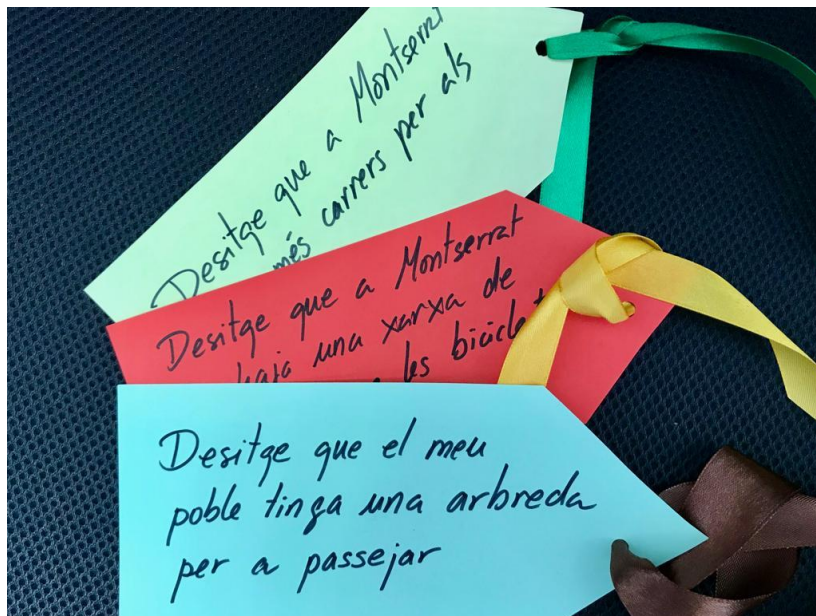 Desitge que a Montserrat
més carrers per als
Desitge que a Montserrat
haja una xarxa de
les
Desitge que el meu
poble tinga una arbreda
per a passejar